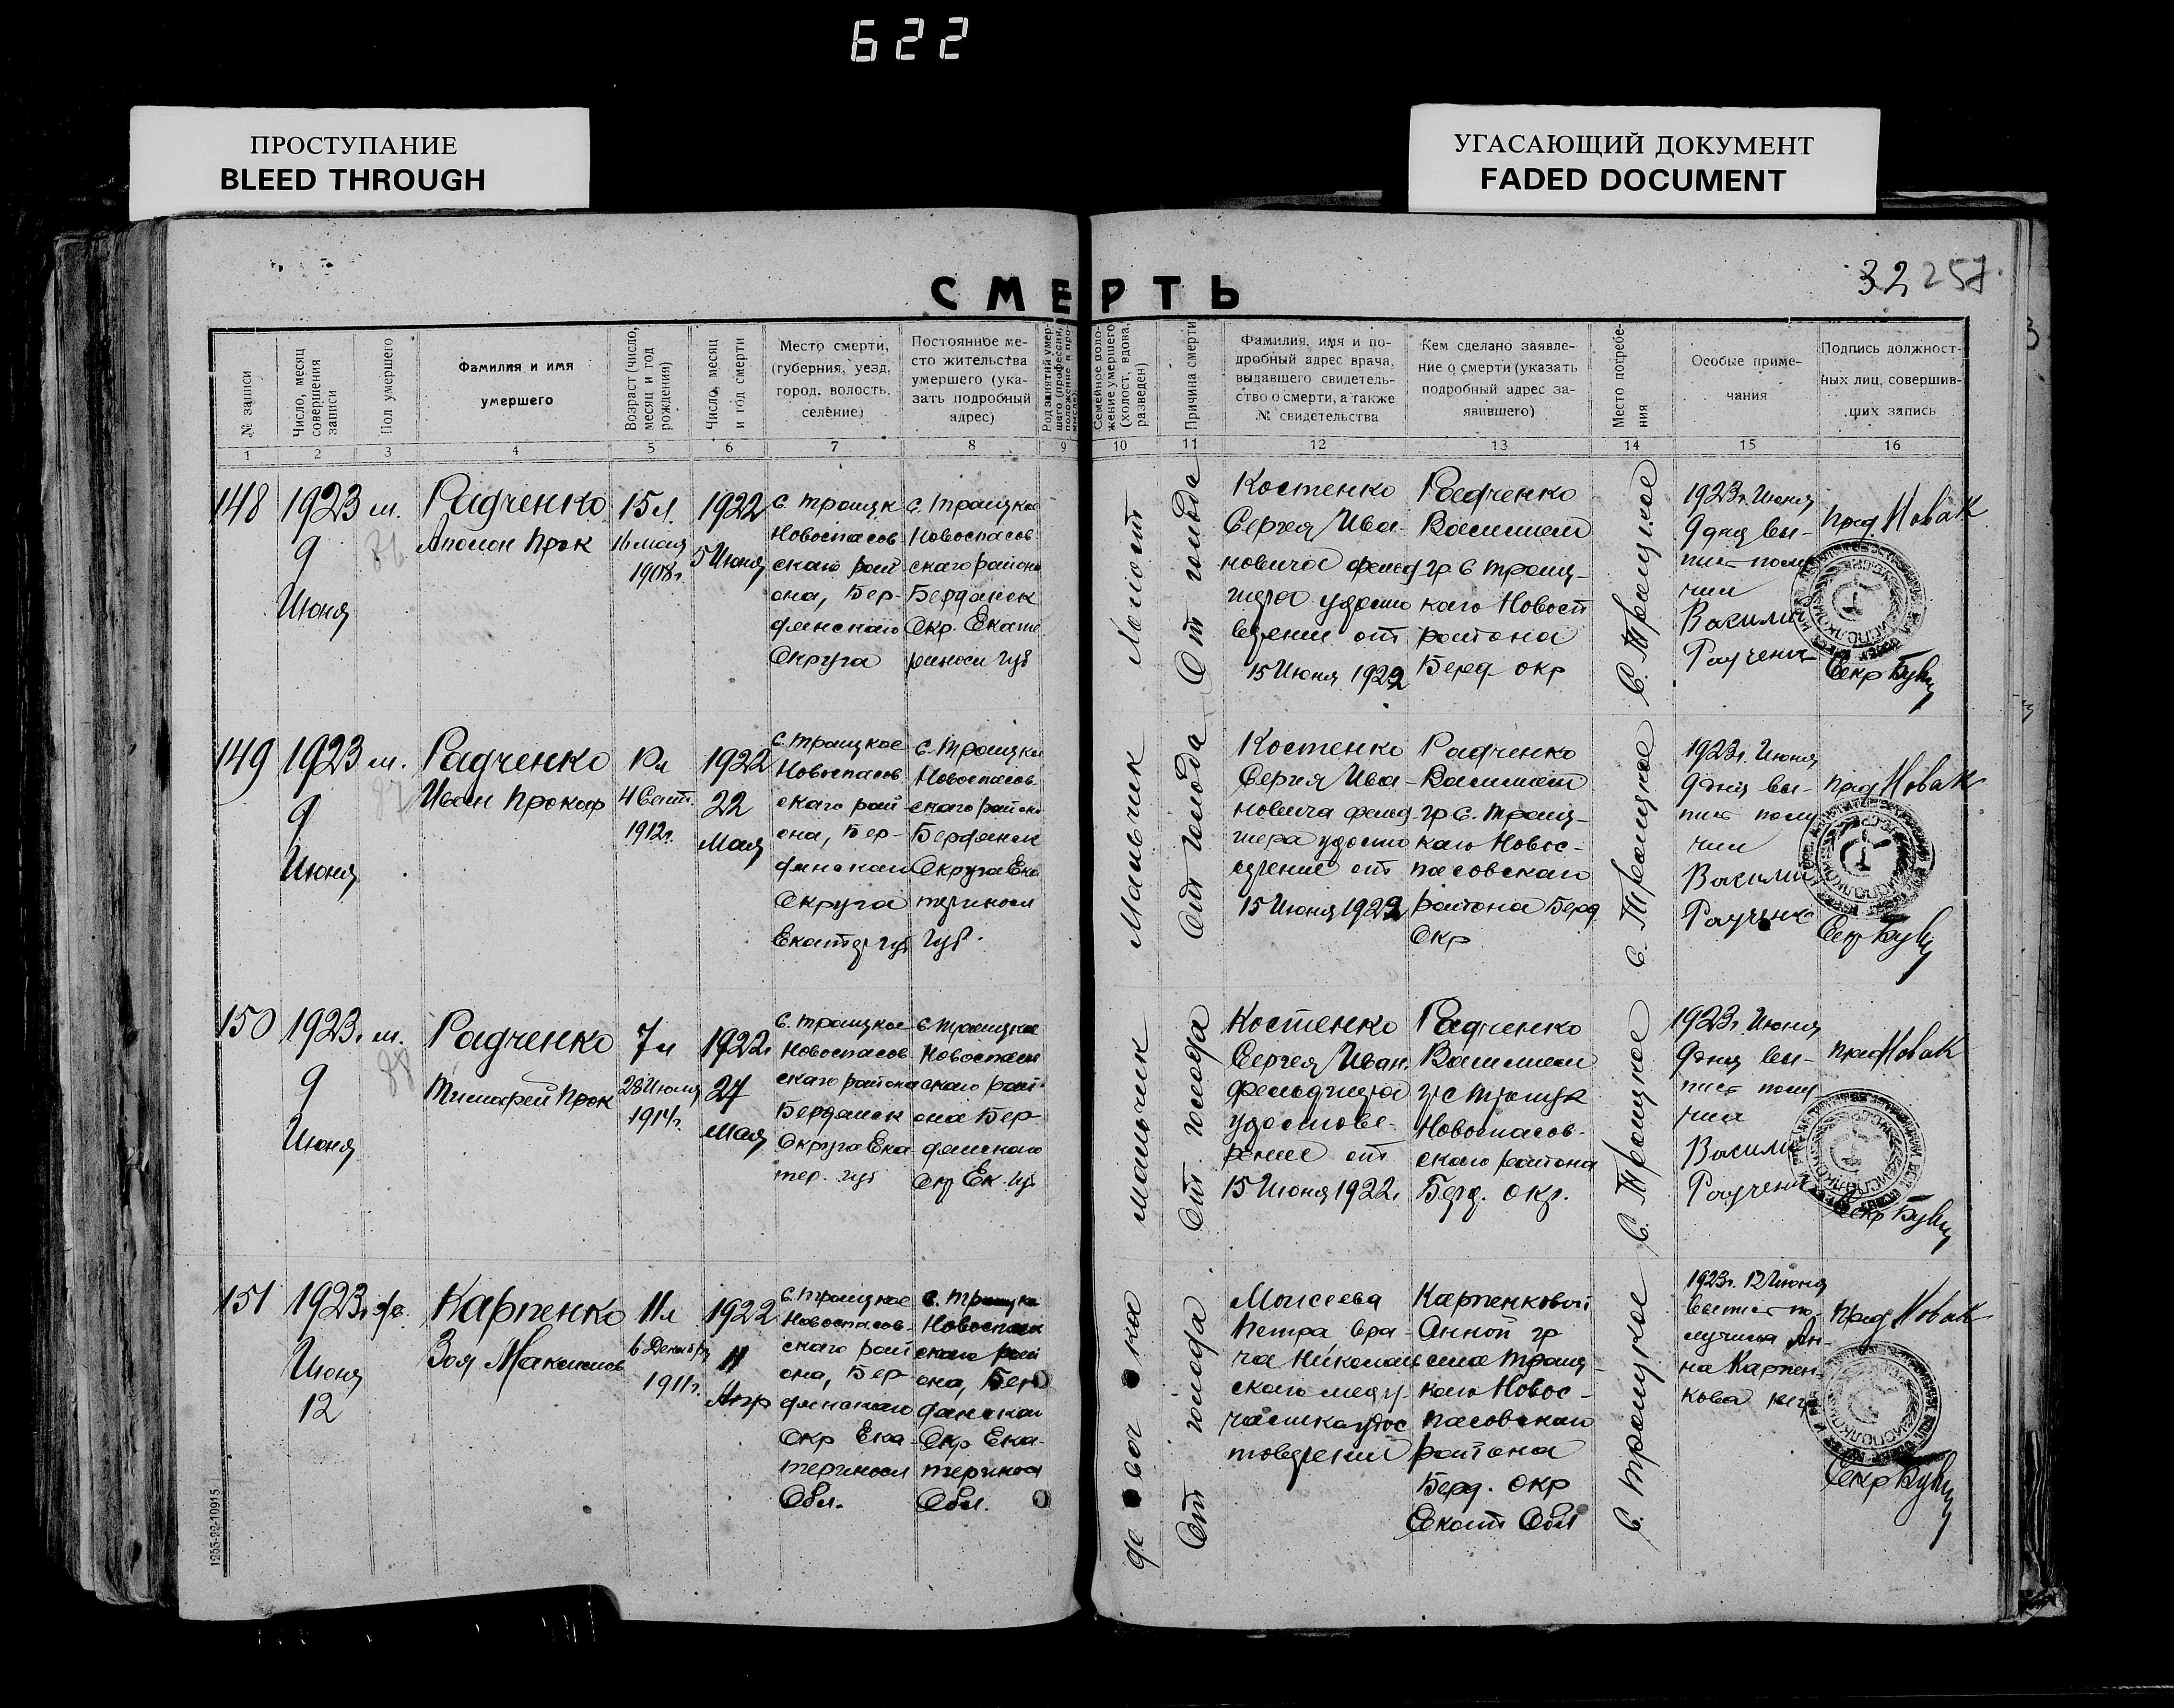 622
ПРОСТУПАНИЕ
BLEED THROUGH
УГАСАЮЩИЙ ДОКУМЕНТ
FADED DOCUMENT
32 257
СМЕРТЬ
№ записи
Число, месяц совершения записи
Пол умершего
Фамилия и имя
умершего
Возраст (число, месяц и год рождения)
Число, месяц и год смерти
Место смерти,
(губерния, уезд,
город, волость,
селение)
Постоянное ме-
сто жительства
умершего (ука-
зать подробный
адрес)
Семейное поло-
жение умершего
(холост, вдова,
разведен)
Причина смерти
Фамилия, имя и по-
дробный адрес врача,
выдавшего свидетель-
ство о смерти, а также
№ свидетельства
Кем сделано заявле-
ние о смерти (указать
подробный адрес за-
явившего)
Место погребе-
ния
Особые приме-
чания
Подпись должност-
ных лиц, совершив-
ших запись
1 2 3 4 5 6 7 8 9 10 11 12 13 14 15 16
148
1923
9
Июня
м.
86
Радченко
Прок
15 л.
16 мая
1908 г.
1922
5 Июня
с. Троицк
Новоспасов
ского рай
она, Бер-
дянского
Округа
с. Троицкое
Новоспасов
ского района
Бердянск
Окр. Екате
риносл губ
Холост
От голода
Костенко
Сергея Ива-
новича фельд
шера удосто
верение от
15 Июня 1922
Радченко
Василием
гр с Троиц-
каго Новосп
района
Берд окр
С. Троицкое
1923 г. Июня
9 дня вы-
пись полу
чил
Василий
Радченко
Пред. Новак
Секр
149
1923
9
Июня
м.
87
Радченко
Иван Прокоф
4 Сент.
1912 г.
1922
22
Мая
с. Троицкое
Новоспасов
скаго рай
она, Бер-
дянскаго
Округа
Екатер губ
с. Троицкое
Новоспасов
скаго района
Бердянск
Округа Ека
териносл
губ.
Мальчик
От голода
Костенко
Сергея Ива-
новича фельд
шера удосто
верение от
15 Июня 1922
Радченко
Василием
гр с. Троиц-
каго Новос-
пасовскаго
района Берд
Окр
С. Троицкое
1923 г. Июня
9 дня вы-
пись полу
чил
Василий
Радченко
Пред Новак
Секр
150
1923 г.
9
Июня
м.
88
Радченко
Тимофей Прок
7 л
28 Июля
1914 г.
1922 г
27
Мая
с. Троицкое
Новоспасов
скаго района
Бердянск
Округа Ека
тер. губ
с Троицкое
Новоспасов
скаго рай
она Бер-
дянскаго
Окр Ек. губ
мальчик
От голода
Костенко
Сергея Иван.
фельдшера
удостове-
рение от
15 Июня 1922 г.
Радченко
Василием
гр с Троицк
Новоспасов-
скаго района
Берд. окр.
С. Троицкое
1923 г. Июня
9 дня вы-
пись полу
чил
Василий
Радченко
Пред Новак
Секр
151
1923 г.
Июня
12
ж.
Карпенко
Зоя Максимов
11 л
6 Декабря
1911 г.
1922
11
Апр
с. Троицкое
Новоспасов-
скаго рай
она, Бер
дянскаго
Окр Ека-
териносл
Обл.
с. Троицкое
Новоспасов
скаго рай
она, Бер
дянскаго
Окр Ека-
териносл
Обл.
От голода
Моисеева
Петра вра-
ча Николаев
скаго мед у-
частка удос
товерение
Карпенковой
Анной гр
села Троиц-
каго Новос-
пасовскаго
района
Берд. окр
Екат Обл
С. Троицкое
1923 г. 12 Июня
выпись по-
лучила Ан-
на Карпен-
кова
Пред Новак
Секр
1253-22-10915